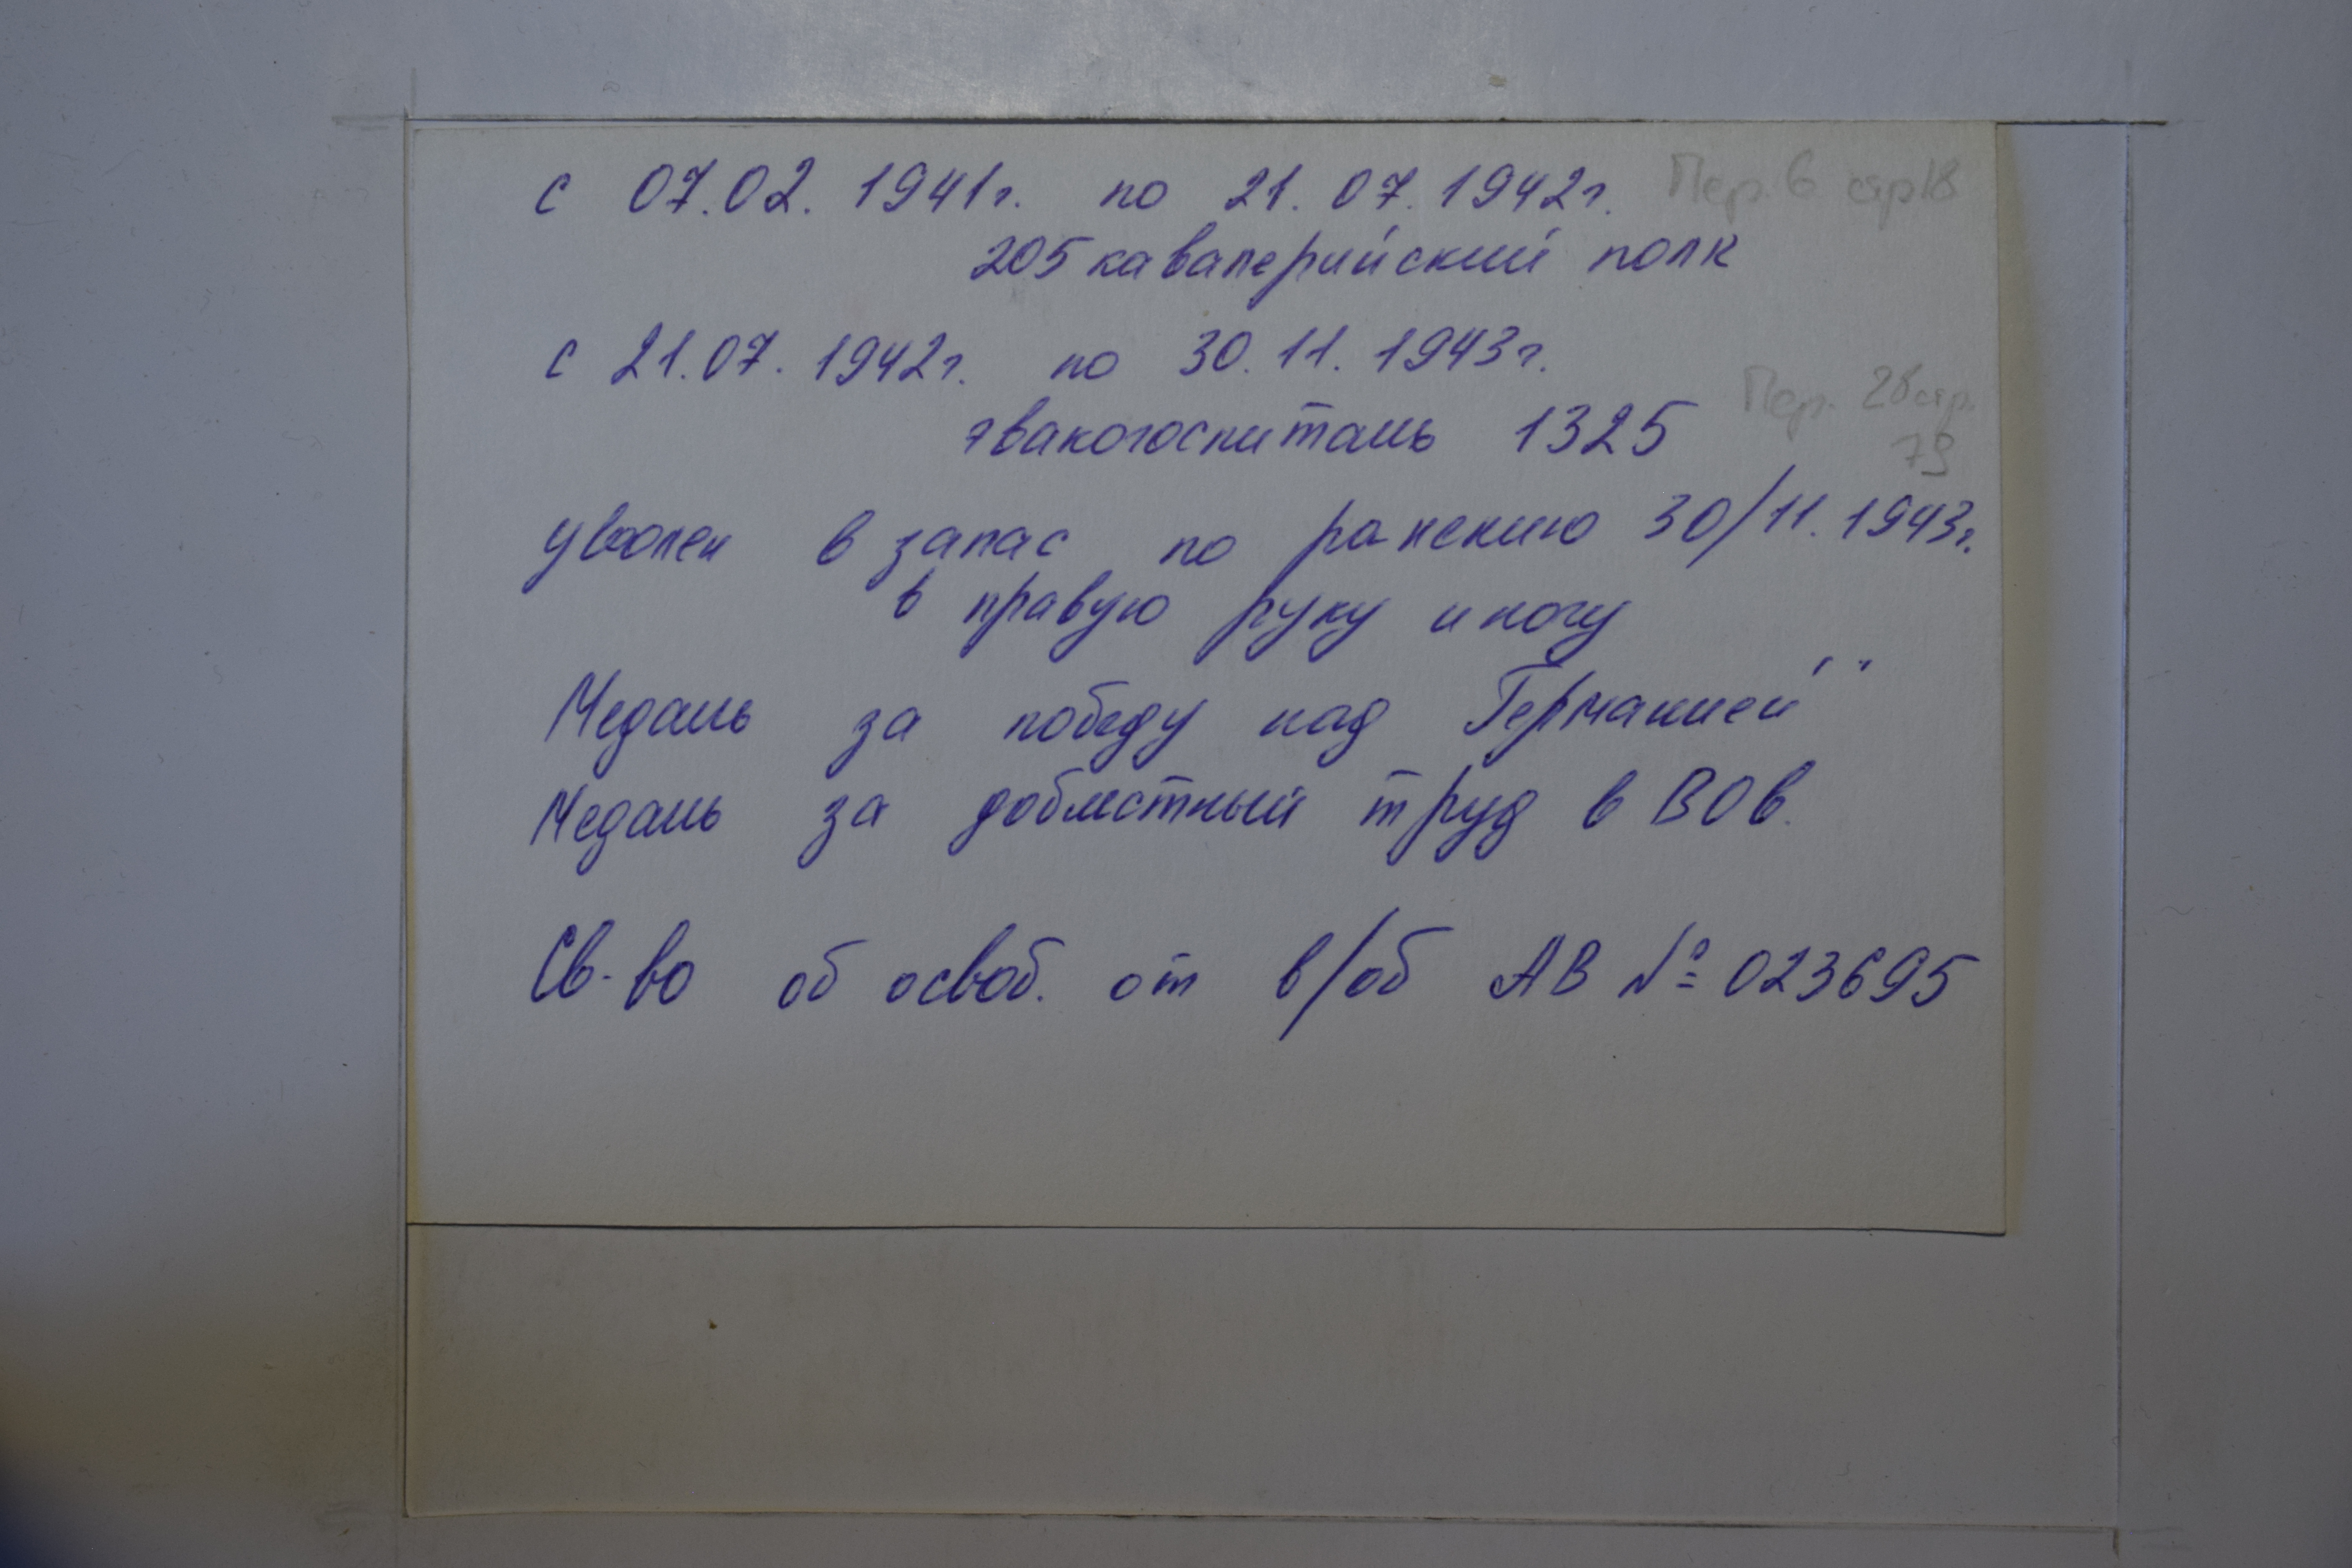 с 07.02.1941г. по 21.07.1942г. Пер. 6 стр 18
205 кавалерийский полк
с 21.07.1942г. по 30.11.1943г.
Пер. 28 стр.
эвакогоспиталь 1325
79
уволен в запас по ранению 30/11.1943г.
в правую руку и ногу
Медаль за победу над Германией"
Медаль за доблестный труд в ВОв.
Св-во об освоб. от в/об АВ № 023695